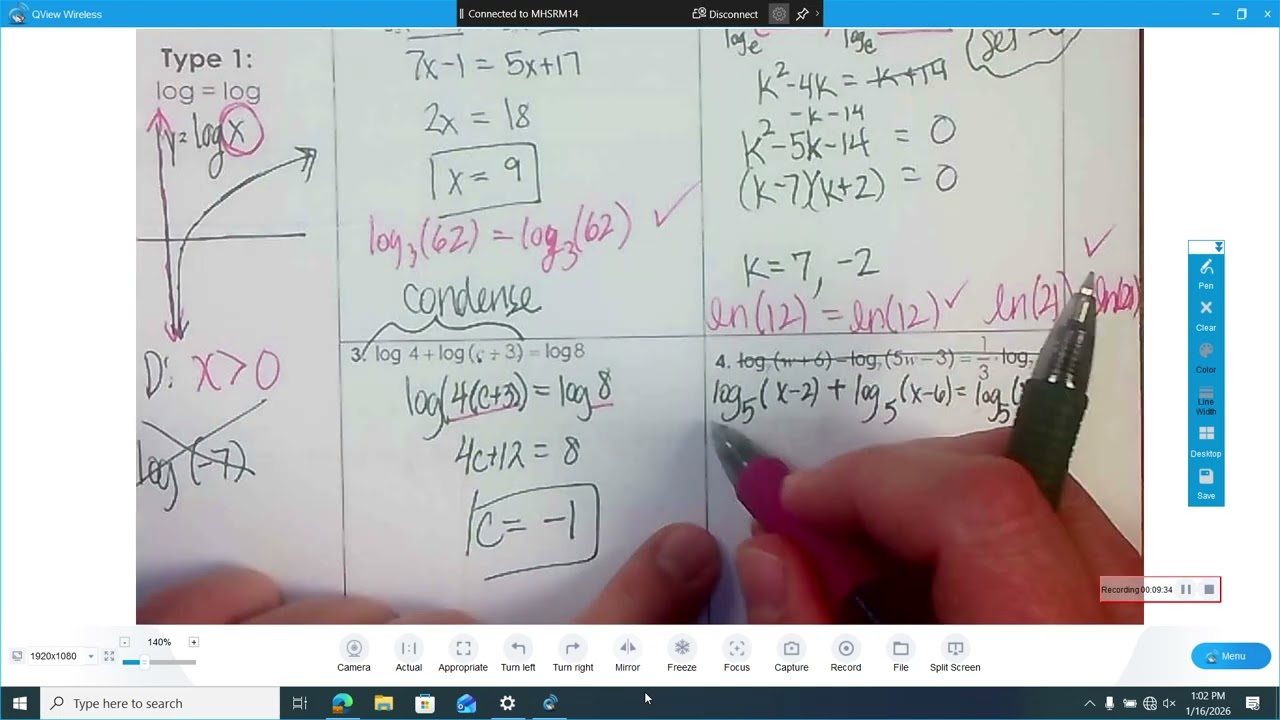 QView Wireless
Connected to MHSRM14
Disconnect
Type 1:
log = log
y = log x
D: x > 0
log (-7)
7x-1 = 5x+17
2x = 18
x = 9
log₃(62) = log₃(62) ✓
condense
3. log 4 + log(c + 3) = log 8
log(4(c+3)) = log 8
4c+12 = 8
c = -1
logₑ
logₑ
k²-4k = -k+14
-k -14
k²-5k-14 = 0
(k-7)(k+2) = 0
k = 7, -2
ln(12) = ln(12) ✓ ln(21) ln(21) ✓
4.
1/3 · log
log₅(x-2) + log₅(x-6) = log₅(
Pen
Clear
Color
Line
Width
Desktop
Save
Recording 00:09:34
1920x1080
- 140% +
Camera
Actual
Appropriate
Turn left
Turn right
Mirror
Freeze
Focus
Capture
Record
File
Split Screen
Menu
Type here to search
1:02 PM
1/16/2026